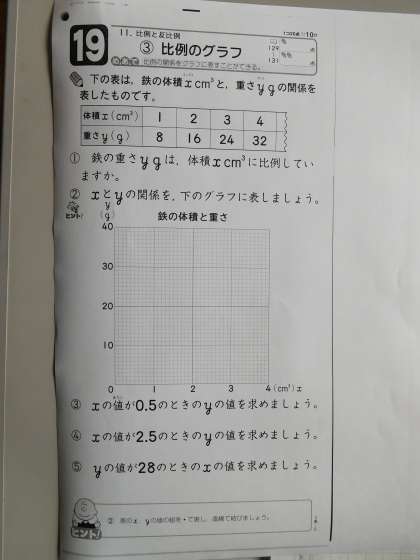 19
11. 比例と反比例
③ 比例のグラフ
10分
129
131
めあて 比例の関係をグラフに表すことができる。
下の表は，鉄の体積xcm³と，重さygの関係を
表したものです。
体積x(cm³) 1 2 3 4
重さy(g) 8 16 24 32
① 鉄の重さygは，体積xcm³に比例してい
ますか。
② xとyの関係を，下のグラフに表しましょう。
ヒント!
y
(g)
鉄の体積と重さ
40
30
20
10
0 1 2 3 4(cm³)x
③ xの値が0.5のときのyの値を求めましょう。
④ xの値が2.5のときのyの値を求めましょう。
⑤ yの値が28のときのxの値を求めましょう。
ヒント!
② 表のx，yの値の組を・で表し，直線で結びましょう。